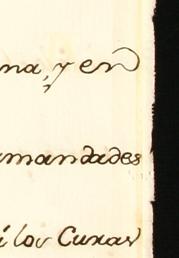 na, y en
mandades
á los Curas